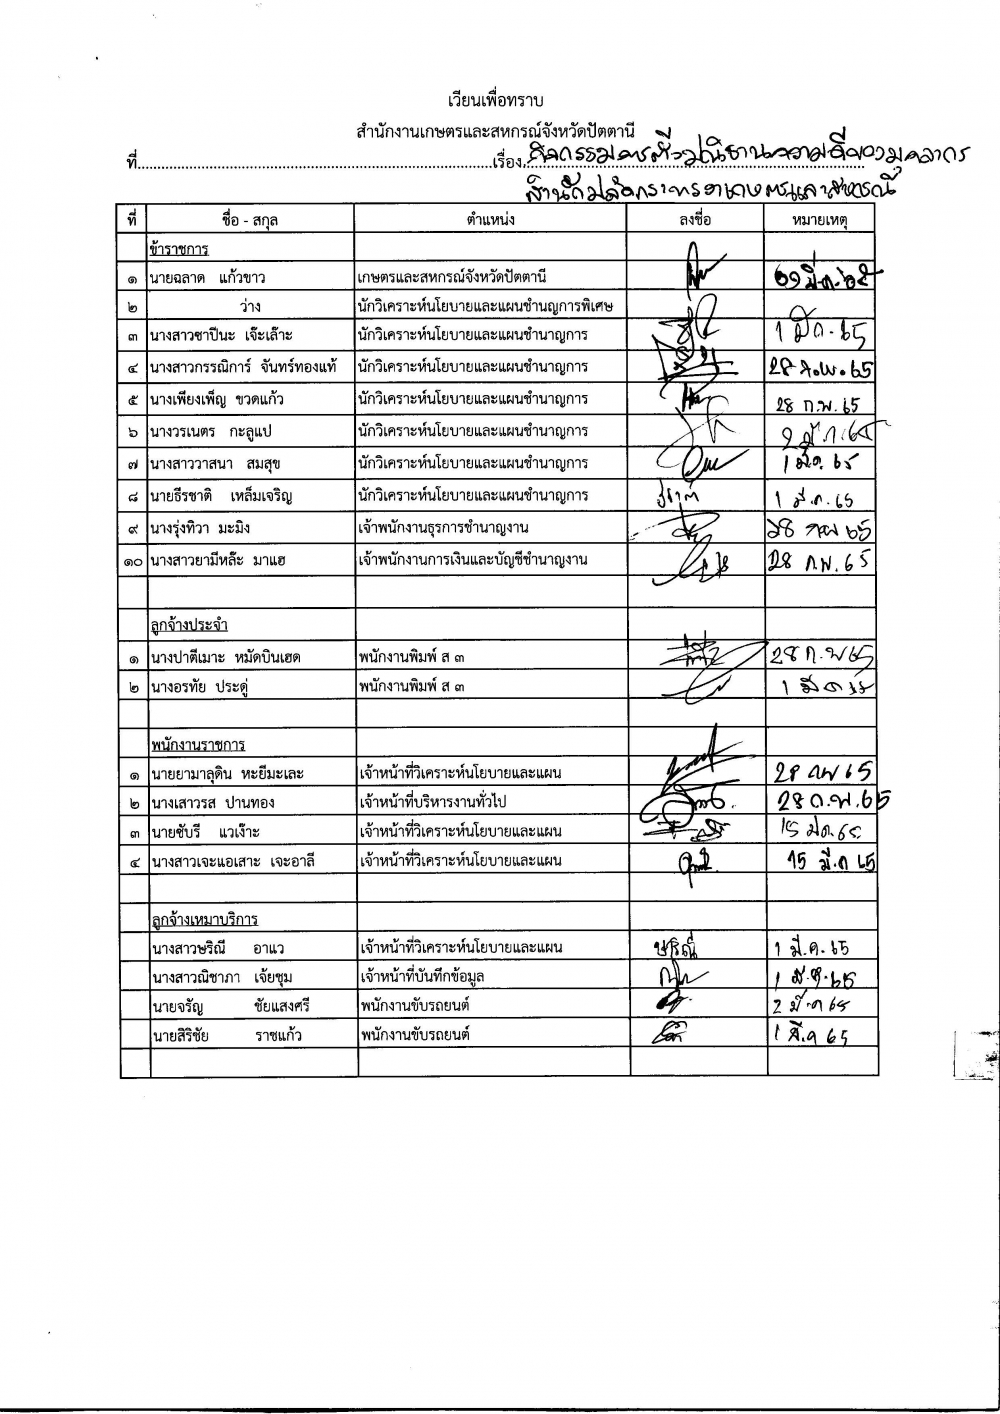 เวียนเพื่อทราบ
สำนักงานเกษตรและสหกรณ์จังหวัดปัตตานี
ที่..........เรื่อง. กิจกรรมการตั้งปณิธานความดีของบุคลากร
สำนักปลัดกระทรวงเกษตรและสหกรณ์
ที่ ชื่อ - สกุล ตำแหน่ง ลงชื่อ หมายเหตุ
ข้าราชการ
๑ นายฉลาด แก้วขาว เกษตรและสหกรณ์จังหวัดปัตตานี มี.ค. ๖๕
๒ ว่าง นักวิเคราะห์นโยบายและแผนชำนญการพิเศษ
๓ นางสาวซาปีนะ เจ๊ะเล๊าะ นักวิเคราะห์นโยบายและแผนชำนาญการ 1 มีค. 65
๔ นางสาวกรรณิการ์ จันทร์ทองแท้ นักวิเคราะห์นโยบายและแผนชำนาญการ 28 ก.พ. 65
๕ นางเพียงเพ็ญ ขวดแก้ว นักวิเคราะห์นโยบายและแผนชำนาญการ 28 ก.พ. 65
๖ นางวรเนตร กะลูแป นักวิเคราะห์นโยบายและแผนชำนาญการ 2 มี.ค. 65
๗ นางสาววาสนา สมสุข นักวิเคราะห์นโยบายและแผนชำนาญการ 1 มีค. 65
๘ นายธีรชาติ เหล็มเจริญ นักวิเคราะห์นโยบายและแผนชำนาญการ 1 มี.ค. 65
๙ นางรุ่งทิวา มะมิง เจ้าพนักงานธุรการชำนาญงาน 28 กพ 65
๑๐ นางสาวยามีหล๊ะ มาแฮ เจ้าพนักงานการเงินและบัญชีชำนาญงาน 28 ก.พ. 65
ลูกจ้างประจำ
๑ นางปาตีเมาะ หมัดบินเฮด พนักงานพิมพ์ ส ๓ 28 ก.พ 65
๒ นางอรทัย ประดู่ พนักงานพิมพ์ ส ๓ 1 มีค
พนักงานราชการ
๑ นายยามาลุดิน หะยีมะเละ เจ้าหน้าที่วิเคราะห์นโยบายและแผน 28 กพ 65
๒ นางเสาวรส ปานทอง เจ้าหน้าที่บริหารงานทั่วไป 28 ก.พ. 65
๓ นายซับรี แวเง๊าะ เจ้าหน้าที่วิเคราะห์นโยบายและแผน 15 มีค. 65
๔ นางสาวเจะแอเสาะ เจะอาลี เจ้าหน้าที่วิเคราะห์นโยบายและแผน 15 มี.ค 65
ลูกจ้างเหมาบริการ
นางสาวษริณี อาแว เจ้าหน้าที่วิเคราะห์นโยบายและแผน ษริณี 1 มี.ค. 65
นางสาวณิชาภา เจ้ยชุม เจ้าหน้าที่บันทึกข้อมูล 1 มี.ค. 65
นายจรัญ ชัยแสงศรี พนักงานขับรถยนต์ 2 มี.ค 65
นายสิริชัย ราชแก้ว พนักงานขับรถยนต์ 1 มี.ค 65